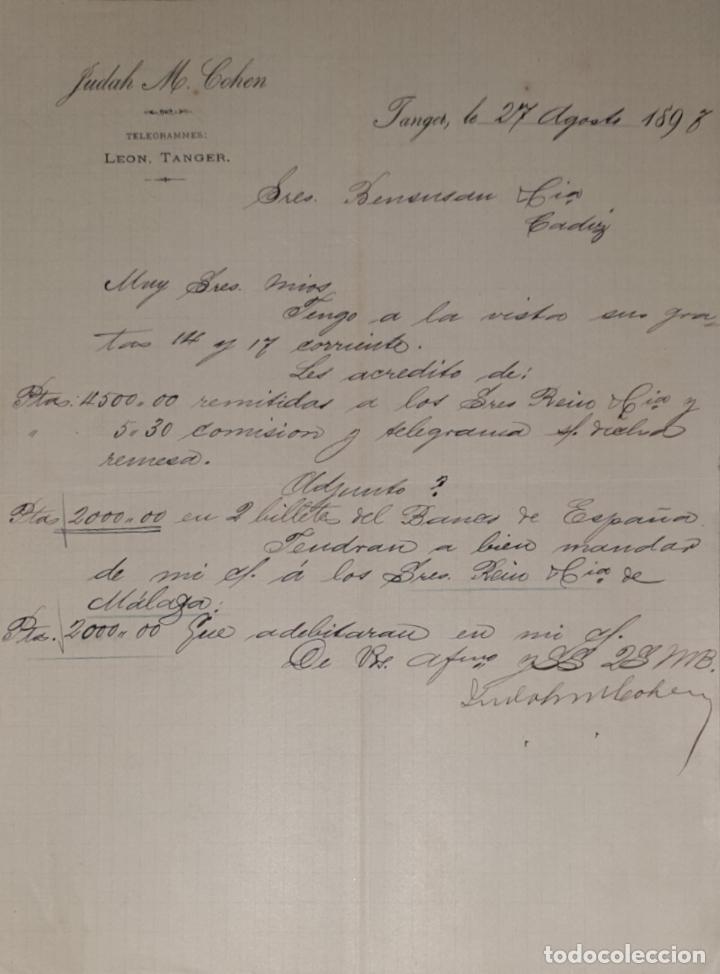 Judah M. Cohen
TELEGRAMMES:
LEON, TANGER.
Tanger, le 27 Agosto 1898
Sres. Benensan & Cia
Cadiz
Muy Sres. mios
Tengo a la vista sus gra-
tas 14 y 17 corriente.
Les acredito de:
Ptas. 4500"00 remitidas a los Sres Rein & Cia y
" 5"30 comision y telegrama s/ dicha
remesa.
Adjunto
Ptas 2000"00 en 2 billetes del Banco de España
Tendran a bien mandar
de mi c/. á los Sres. Rein & Cia. de
Málaga:
Ptas. 2000"00 Que adebitaran en mi c/.
De Vs. afmo y SS QSMB.
Judah M Cohen
todocoleccion